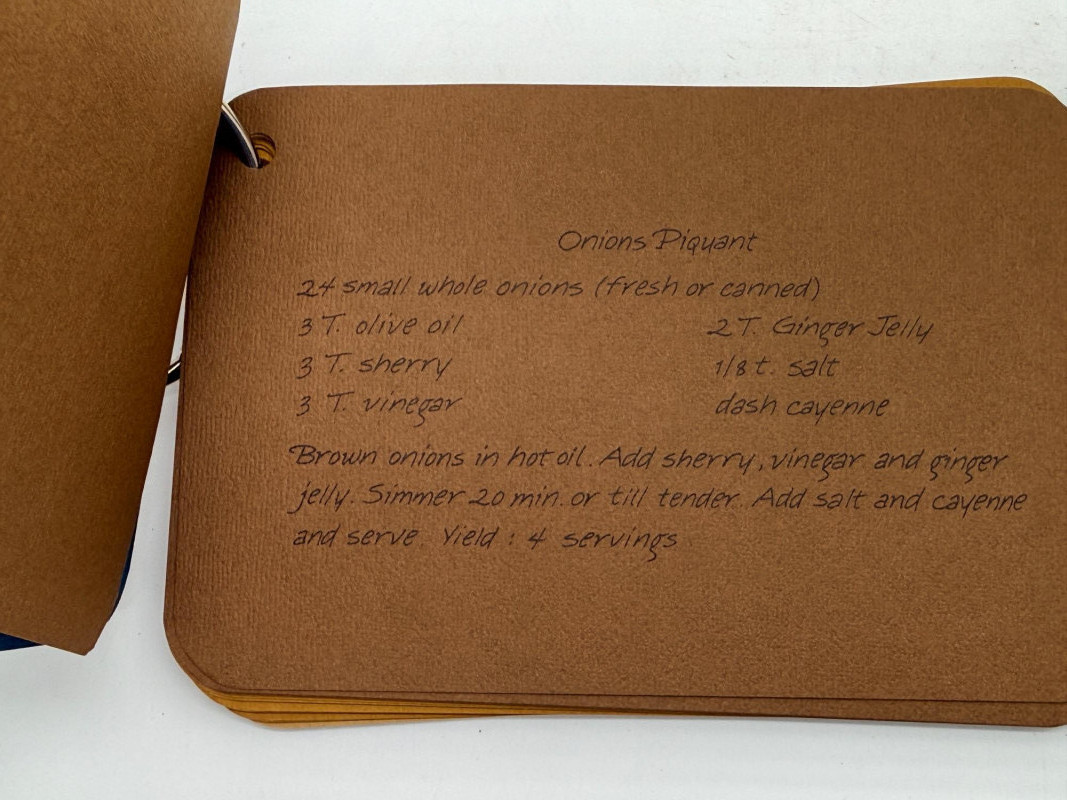 Onions Piquant
24 small whole onions (fresh or canned)
3 T. olive oil
3 T. sherry
3 T. vinegar
2 T. Ginger Jelly
1/8 t. salt
dash cayenne
Brown onions in hot oil. Add sherry, vinegar and ginger
jelly. Simmer 20 min. or till tender. Add salt and cayenne
and serve. Yield : 4 servings